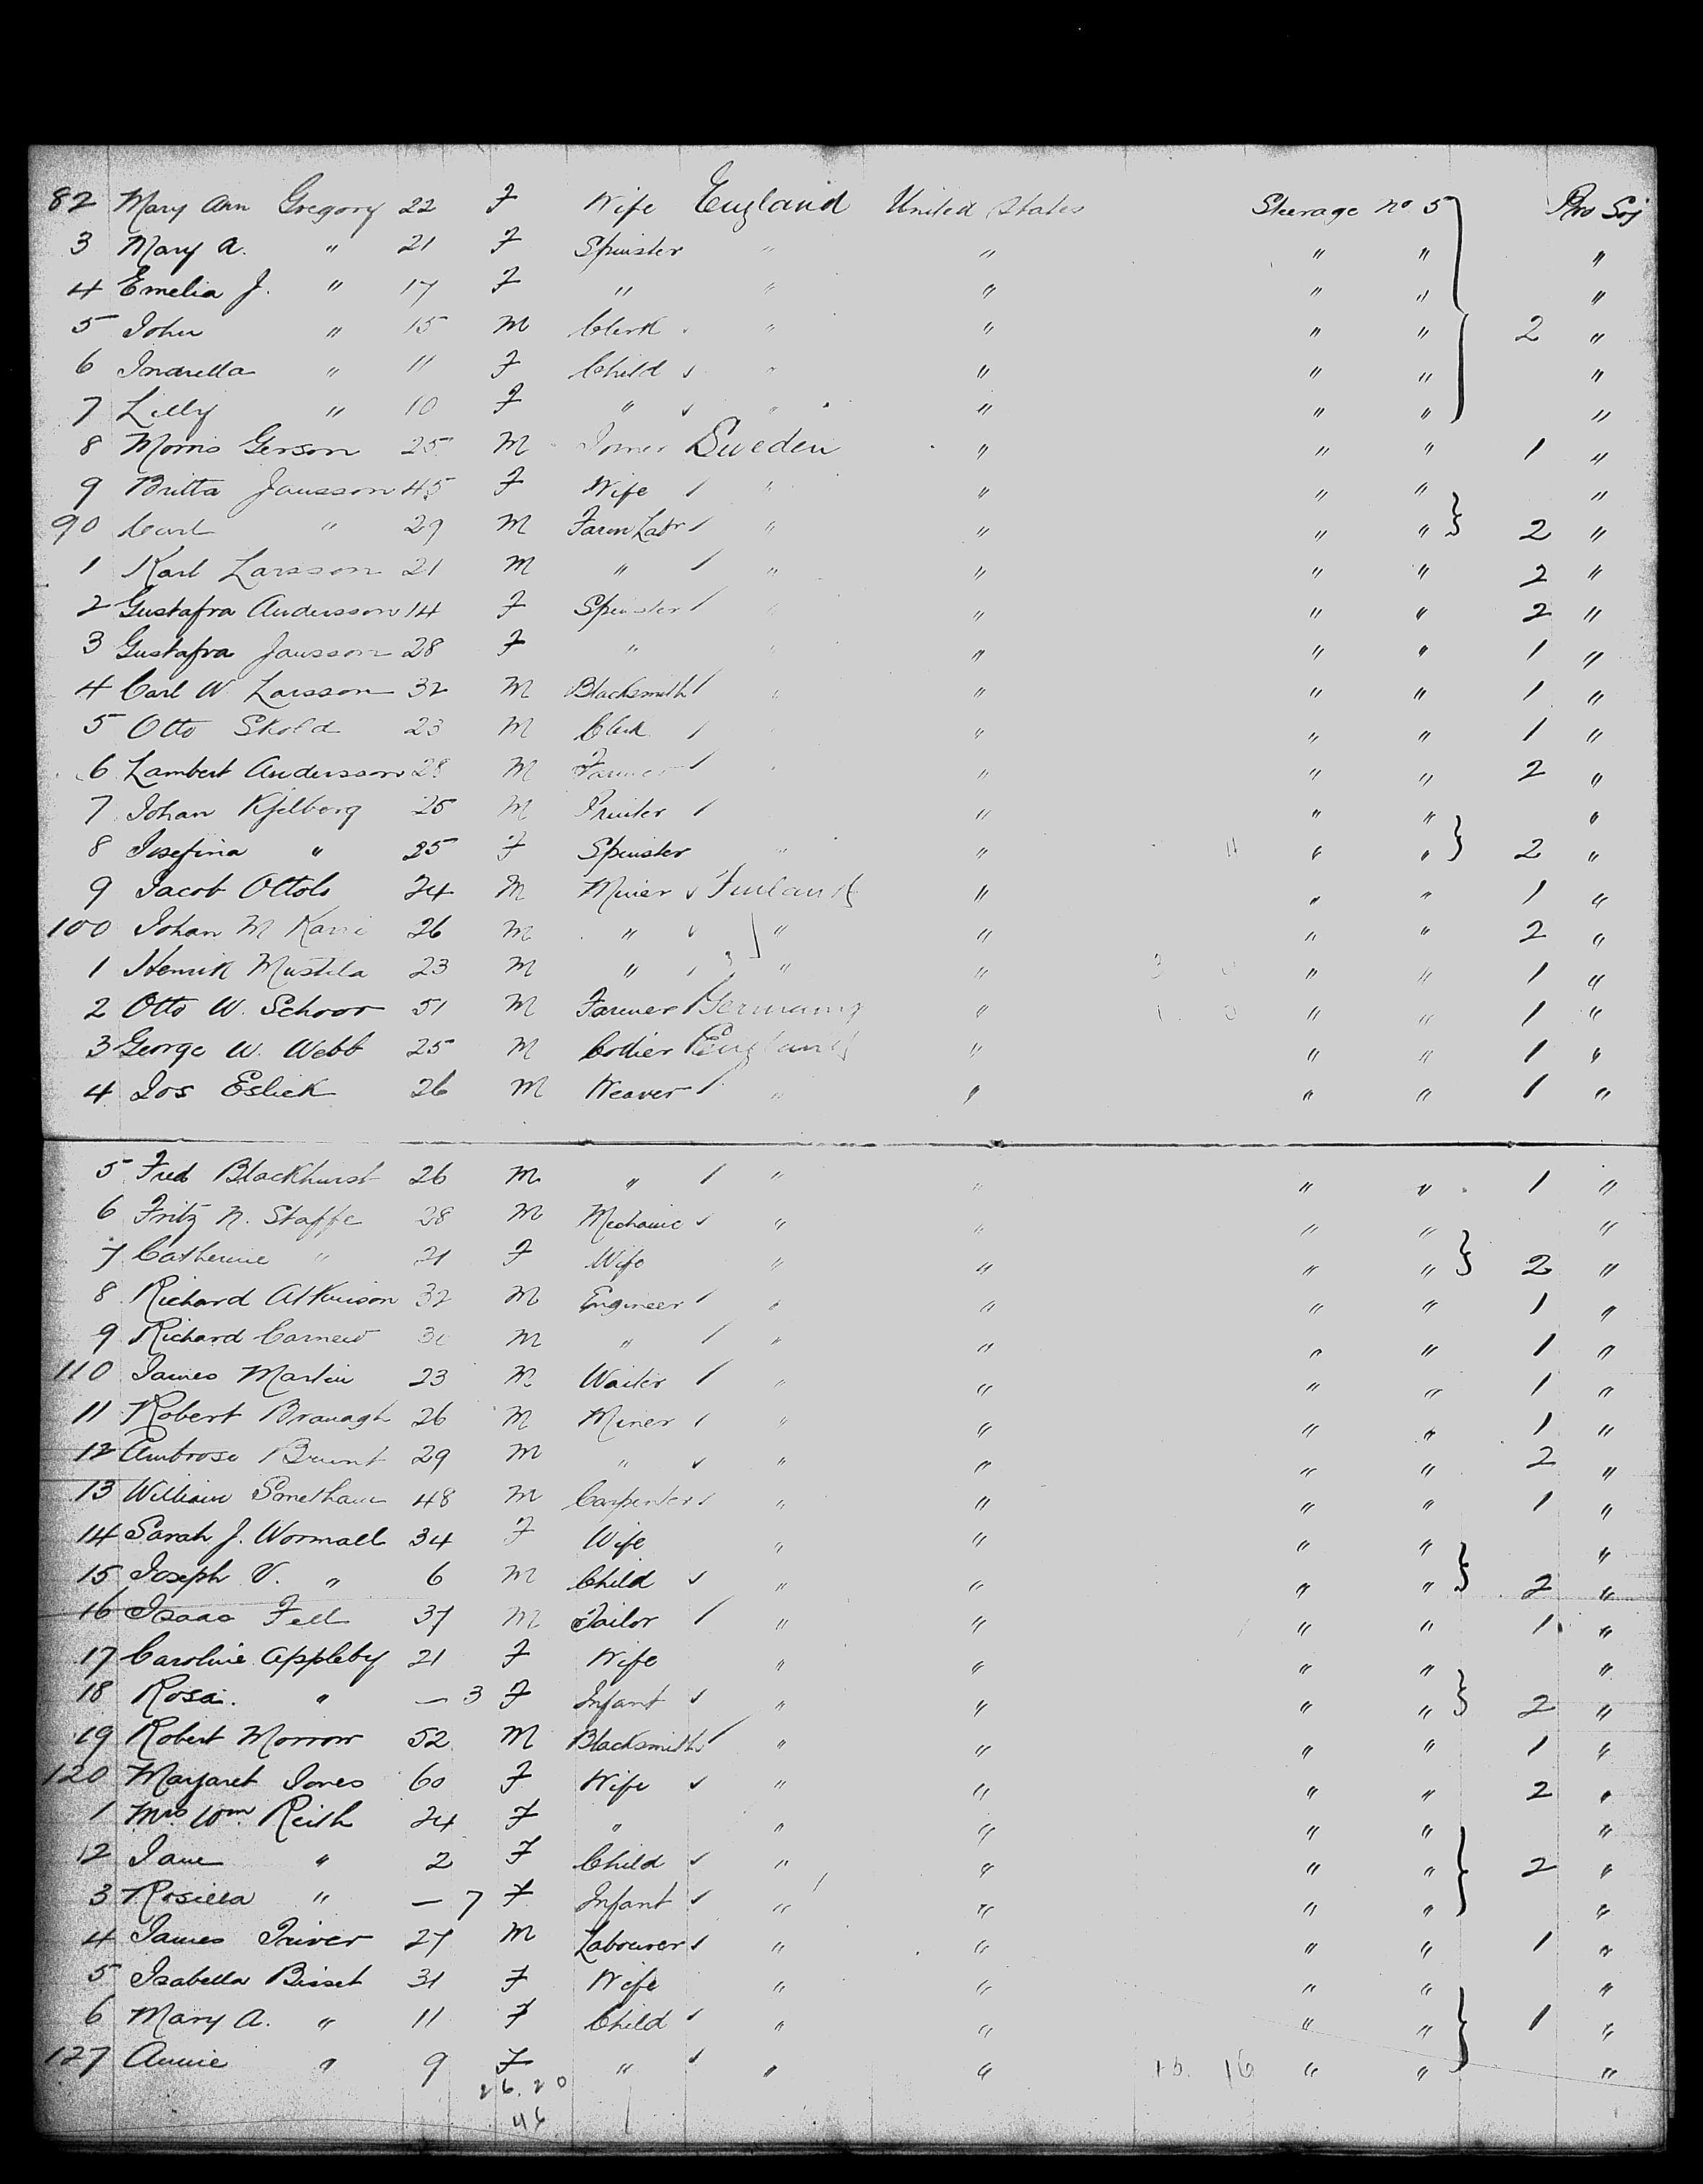 82 Mary Ann Gregory 22 F Wife England United States Steerage No 5 Pro Soj
3 Mary A. " 21 F Spinster " " " " "
4 Emelia J. " 17 F " " " " " "
5 John " 15 M Clerk " " " " 2 "
6 " 11 F Child " " " " "
7 Lilly " 10 F " " " " " "
8 Morris Gerson 25 M Sweden " " " 1 "
9 Britta Jansson 45 F Wife " " " " "
90 Carl " 29 M Farm Labr " " " " 2 "
1 Karl Larsson 21 M " " " " " 2 "
2 Gustafva Andersson 14 F Spinster " " " " 2 "
3 Gustafva Jansson 28 F " " " " " 1 "
4 Carl W. Larsson 32 M Blacksmith " " " " 1 "
5 Otto Skold 23 M Clerk " " " " 1 "
6 Lambert Andersson 28 M Farmer " " " " 2 "
7 Johan Kjelberg 25 M Printer " " " "
8 Josefina " 25 F Spinster " " 11 " " 2 "
9 Jacob Ottolo 24 M Miner Finland " " " 1 "
100 Johan M 26 M " " " " " 2 "
1 Henrik Mustila 23 M " " " 3 0 " " 1 "
2 Otto W. Schoor 51 M Farmer Germany " 1 0 " " 1 "
3 George W. Webb 25 M Collier England " " " 1 "
4 Jos Eslick 26 M Weaver " " " " 1 "
5 Fred Blackhurst 26 M " " " " " 1 "
6 Fritz N. Staffe 28 M Mechanic " " " " "
7 Catherine " 21 F Wife " " " " 2 "
8 Richard Atkinson 32 M Engineer " " " " 1 "
9 Richard Carnew M " " " " " 1 "
110 James Martin 23 M Waiter " " " " 1 "
11 Robert Branagh 26 M Miner " " " " 1 "
12 Ambrose Brunt 29 M " " " " " 2 "
13 William Smetham 48 M Carpenter " " " " 1 "
14 Sarah J. Wormall 34 F Wife " " " " "
15 Joseph V. " 6 M Child " " " " 2 "
16 Isaac Fell 37 M Tailor " " " " 1 "
17 Caroline Appleby 21 F Wife " " " " "
18 Rosa. " — 3 F Infant " " " " 2 "
19 Robert Morrow 52 M Blacksmith " " " " 1 "
120 Margaret Jones 60 F Wife " " " " 2 "
1 Mrs Wm Reith 24 F " " " " " "
12 Jane " 2 F Child " " " " 2 "
3 Rosilla " — 7 F Infant " " " " "
4 James Triver 27 M Labourer " " " " 1 "
5 Isabella Bisset 31 F Wife " " " " "
6 Mary A. " 11 F Child " " " " 1 "
127 Annie " 9 F " " " 16 " " "
26. 20
46